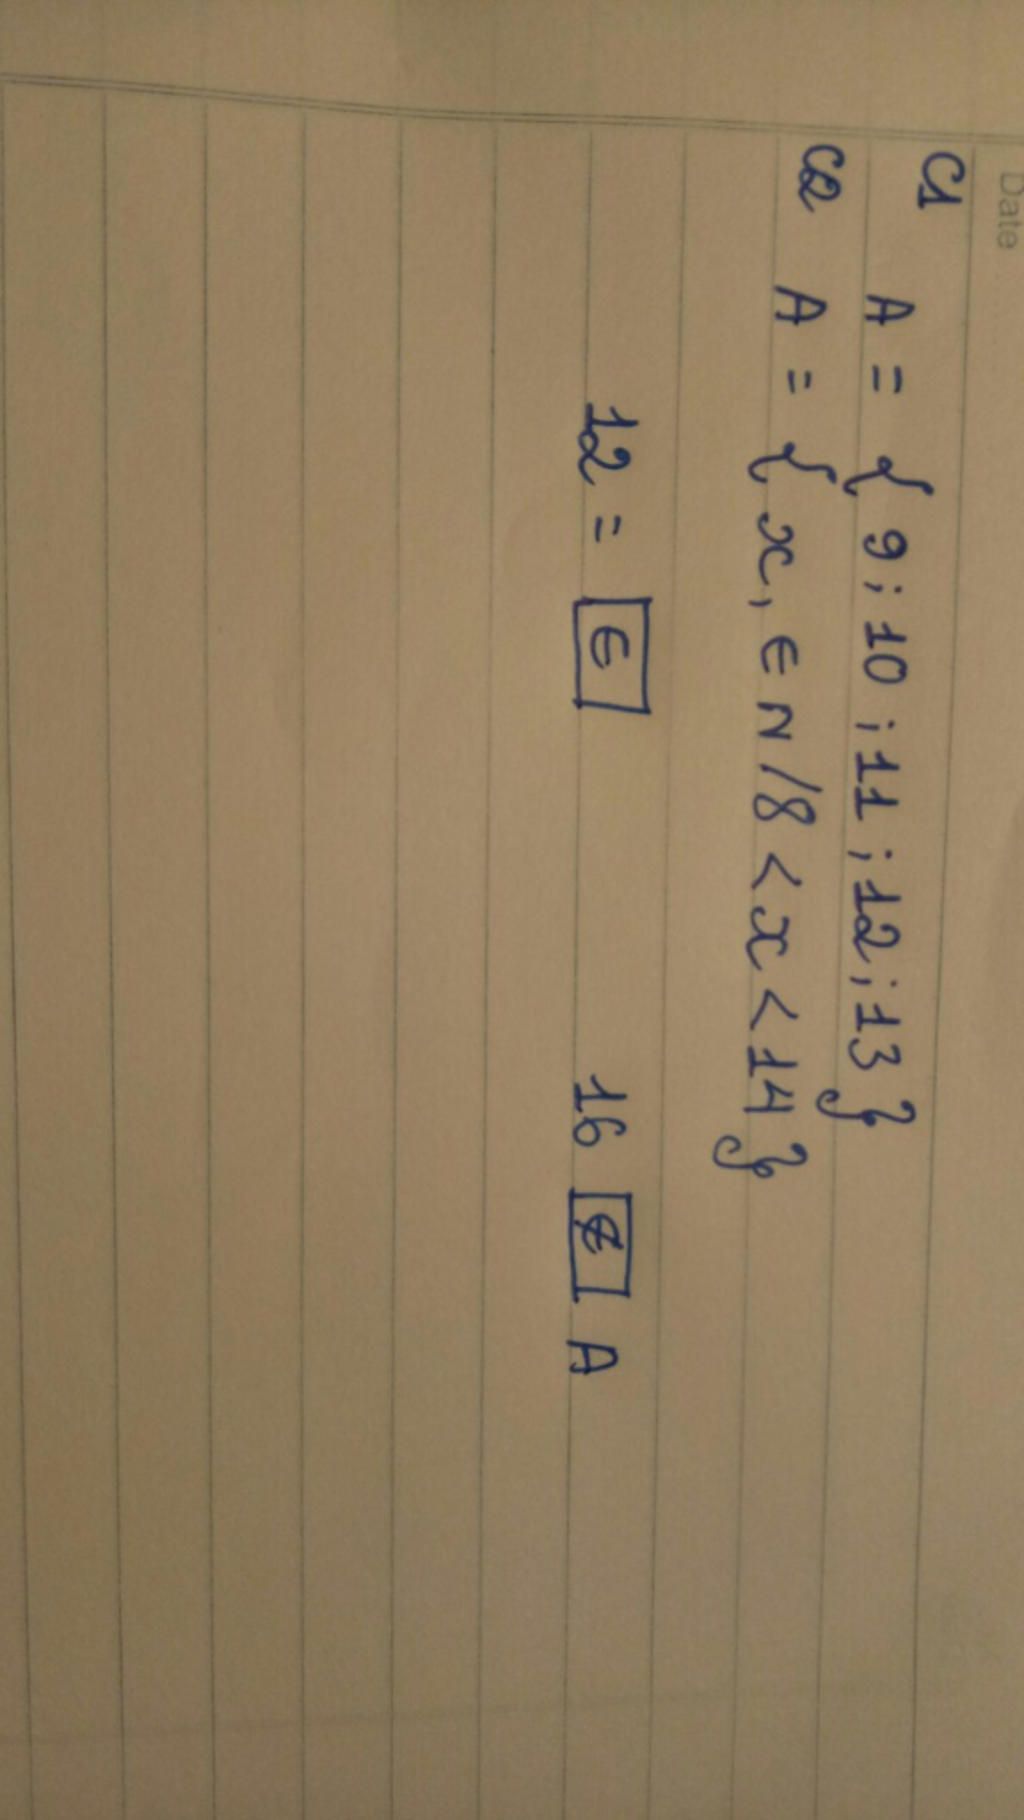 Date
C1 A = { 9; 10; 11; 12; 13 }
C2 A = { x, ∈ N / 8 < x < 14 }
12 = ∈ 16 ∉ A